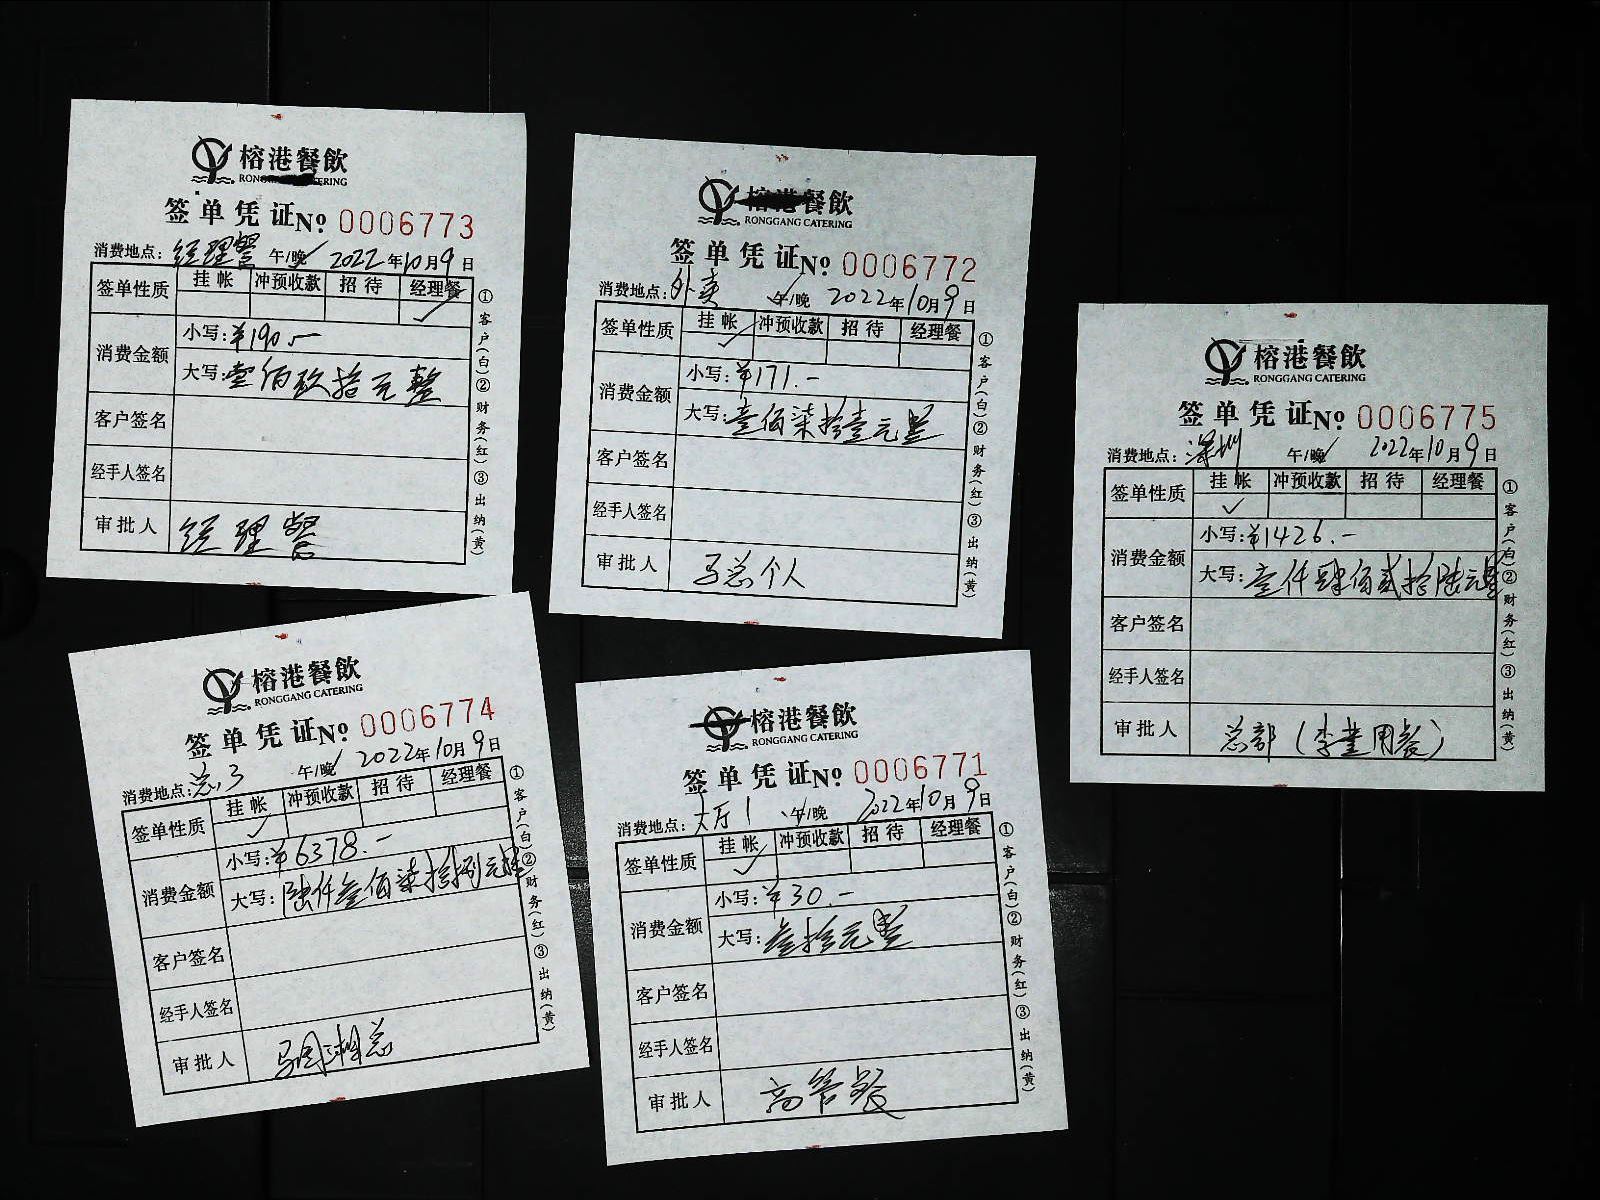 榕港餐飲
签单凭证№ 0006773
消费地点：经理餐 午/晚 2022年10月9日
签单性质 挂帐 冲预收款 招待 经理餐
✓
消费金额 小写：¥190.-
大写：壹佰玖拾元整
客户签名
经手人签名
审批人 经理餐
①客户(白)②财务(红)③出纳(黄)
榕港餐飲
RONGGANG CATERING
签单凭证№ 0006772
消费地点：外卖 午/晚 2022年10月9日
签单性质 挂帐 冲预收款 招待 经理餐
✓
消费金额 小写：¥171.-
大写：壹佰柒拾壹元整
客户签名
经手人签名
审批人 马总个人
①客户(白)②财务(红)③出纳(黄)
榕港餐飲
RONGGANG CATERING
签单凭证№ 0006775
消费地点：深圳 午/晚 2022年10月9日
签单性质 挂帐 冲预收款 招待 经理餐
✓
消费金额 小写：¥1426.-
大写：壹仟肆佰贰拾陆元整
客户签名
经手人签名
审批人 总部（李董用餐）
①客户(白)②财务(红)③出纳(黄)
榕港餐飲
RONGGANG CATERING
签单凭证№ 0006774
消费地点：总3 午/晚 2022年10月9日
签单性质 挂帐 冲预收款 招待 经理餐
✓
消费金额 小写：¥6378.-
大写：陆仟叁佰柒拾捌元整
客户签名
经手人签名
审批人 马国湘总
①客户(白)②财务(红)③出纳(黄)
榕港餐飲
RONGGANG CATERING
签单凭证№ 0006771
消费地点：大厅1 午/晚 2022年10月9日
签单性质 挂帐 冲预收款 招待 经理餐
✓
消费金额 小写：¥30.-
大写：叁拾元整
客户签名
经手人签名
审批人 高管餐
①客户(白)②财务(红)③出纳(黄)